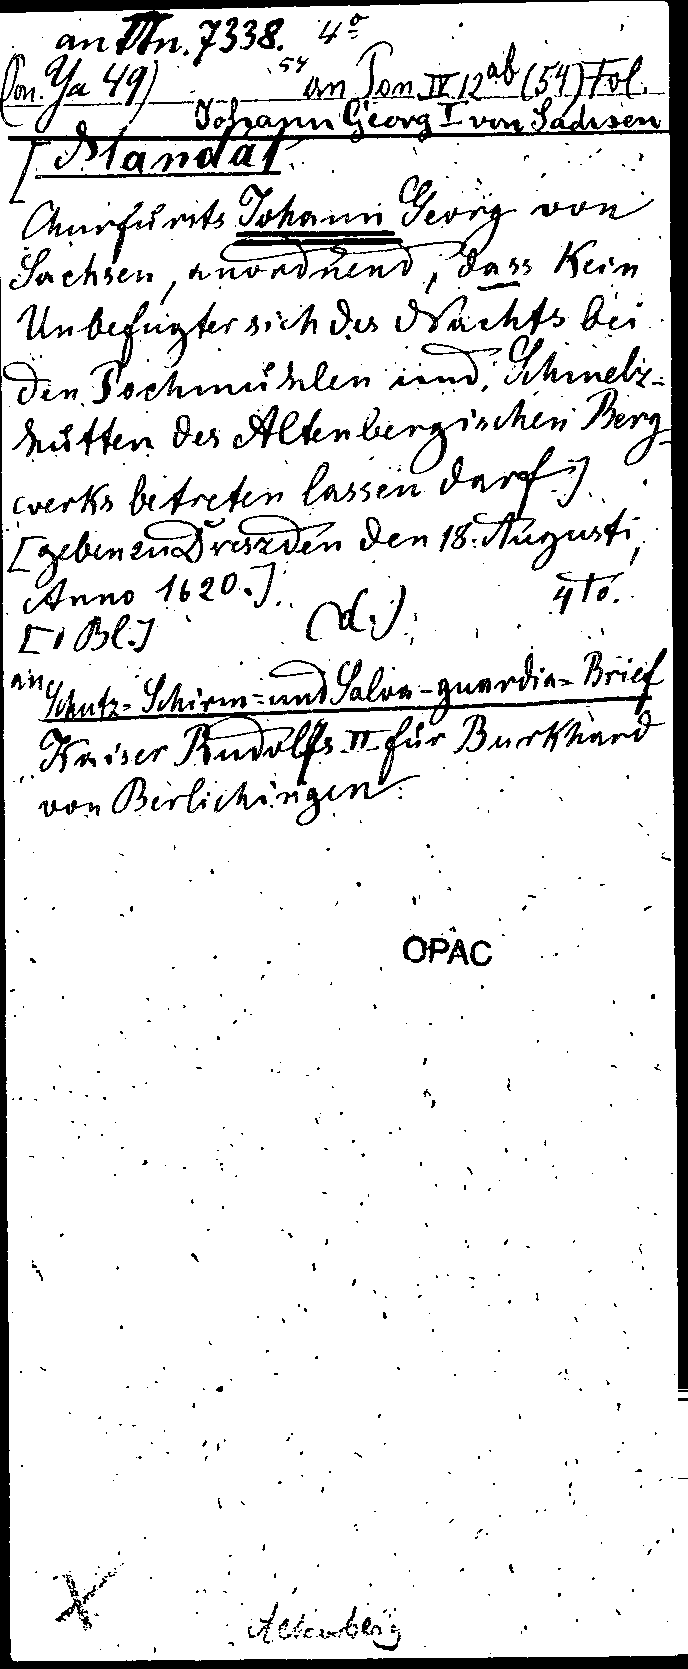 an IIn. 7338. 4°
(Pon. Ya 49) 54 an Pon IV 12ab (54) Fol.
Johann Georg I von Sachsen
[Mandat
Churfürsts Johann Georg von
Sachsen, anordnend, dass Kein
Unbefugter sich des Nachts bei
den Pochmühlen und Schmelz-
hütten des Altenbergischen Berg-
werks betreten lassen darf.]
[geben zu Dreszden den 18. Augusti,
Anno 1620.] 4to.
[1 Bl.] (d.)
an Schutz-Schirm-und Salva-guardia-Brief
Kaiser Rudolfs II für Burkhard
von Berlichingen
OPAC
X
Altenberg